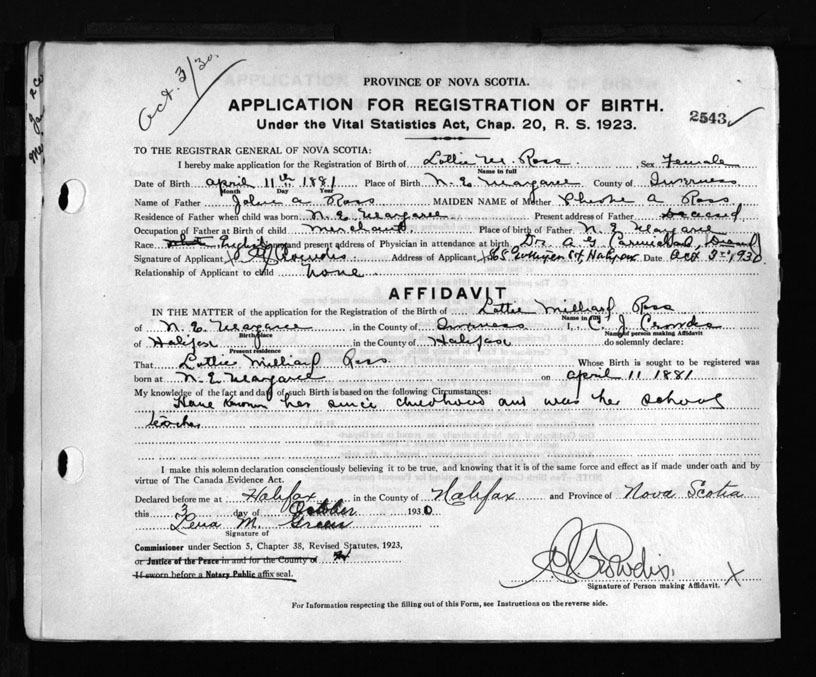 Oct. 3/30.
PROVINCE OF NOVA SCOTIA.
APPLICATION FOR REGISTRATION OF BIRTH.
2543
Under the Vital Statistics Act, Chap. 20, R. S. 1923.
TO THE REGISTRAR GENERAL OF NOVA SCOTIA:
I hereby make application for the Registration of Birth of Lottie M. Ross Sex Female
Name in full
Date of Birth April 11th 1881 Place of Birth N. E. Margaree County of Inverness
Month Day Year
Name of Father John A. Ross MAIDEN NAME of Mother A Ross
Residence of Father when child was born N. E. Margaree Present address of Father Deceased
Occupation of Father at Birth of child Merchant Place of birth of Father N. E. Margaree
Race and present address of Physician in attendance at birth Dr. A
Signature of Applicant Crowdis Address of Applicant St, Halifax Date Oct 3rd, 1930
Relationship of Applicant to child None
AFFIDAVIT
IN THE MATTER of the application for the Registration of Birth of Lottie Ross
Name in full
of N. E. Margaree in the County of Inverness I, C. J. Crowdis
Birthplace Name of person making Affidavit
of Halifax in the County of Halifax do solemnly declare:
Present residence
That Lottie Ross Whose Birth is sought to be registered was
born at N. E. Margaree on April 11 1881
My knowledge of the fact and date of such Birth is based on the following Circumstances:
Have known her since childhood and was her school
teacher
I make this solemn declaration conscientiously believing it to be true, and knowing that it is of the same force and effect as if made under oath and by
virtue of The Canada Evidence Act.
Declared before me at Halifax in the County of Halifax and Province of Nova Scotia
this 3 day of October 1930
Lena M. Green
Signature of
Commissioner under Section 5, Chapter 38, Revised Statutes, 1923,
or Justice of the Peace in and for the County of
If sworn before a Notary Public affix seal.
Crowdis.
Signature of Person making Affidavit. X
For Information respecting the filling out of this Form, see Instructions on the reverse side.